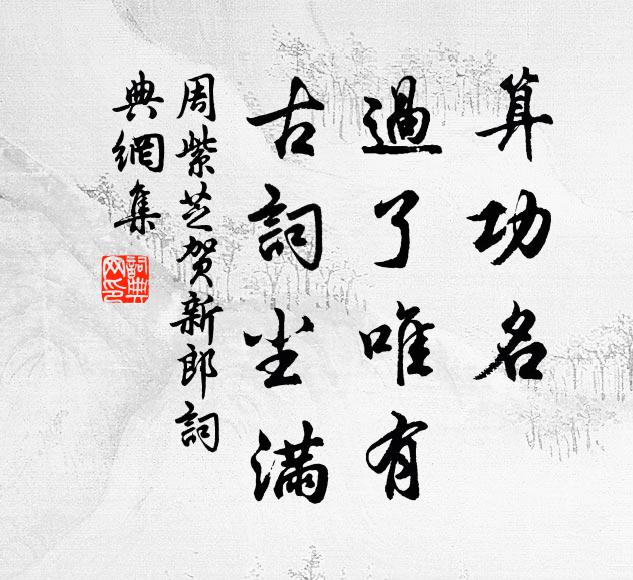 算功名
過了唯有
古詞尘滿
周紫芝贺新郎詞
典網集
詞典
网印